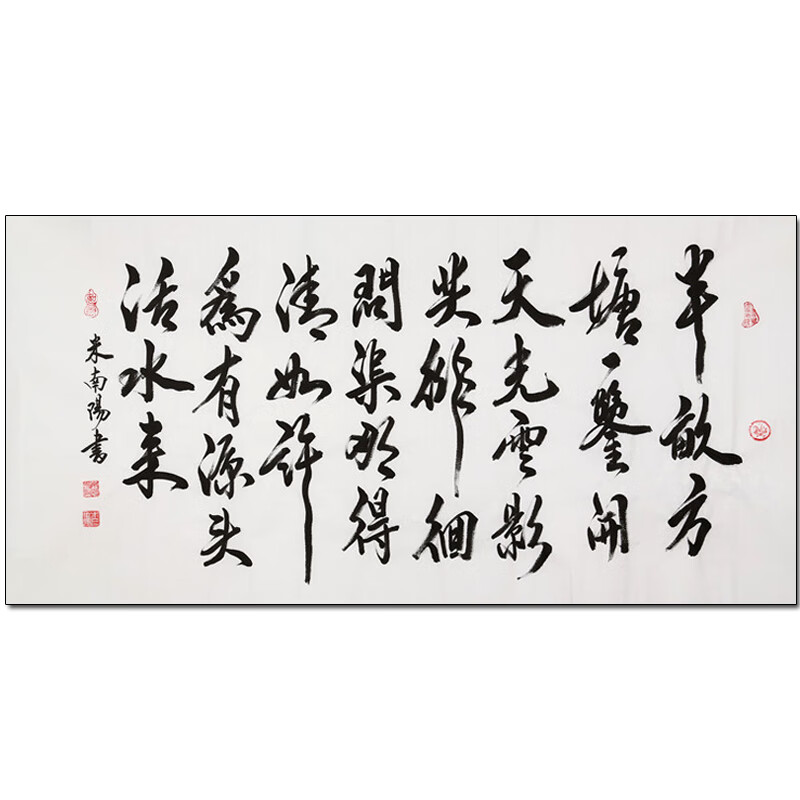 半畝方
塘一鑒開
天光雲影
共徘徊
問渠那得
清如許
為有源头
活水来
米南陽書